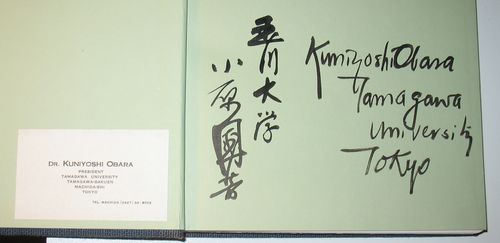 DR. KUNIYOSHI OBARA
PRESIDENT
TAMAGAWA UNIVERSITY
TAMAGAWA-GAKUEN
MACHIDA-SHI
TOKYO
TEL. MACHIDA (0427)
玉川大学
小原國芳
Kuniyoshi Obara
Tamagawa
University
Tokyo